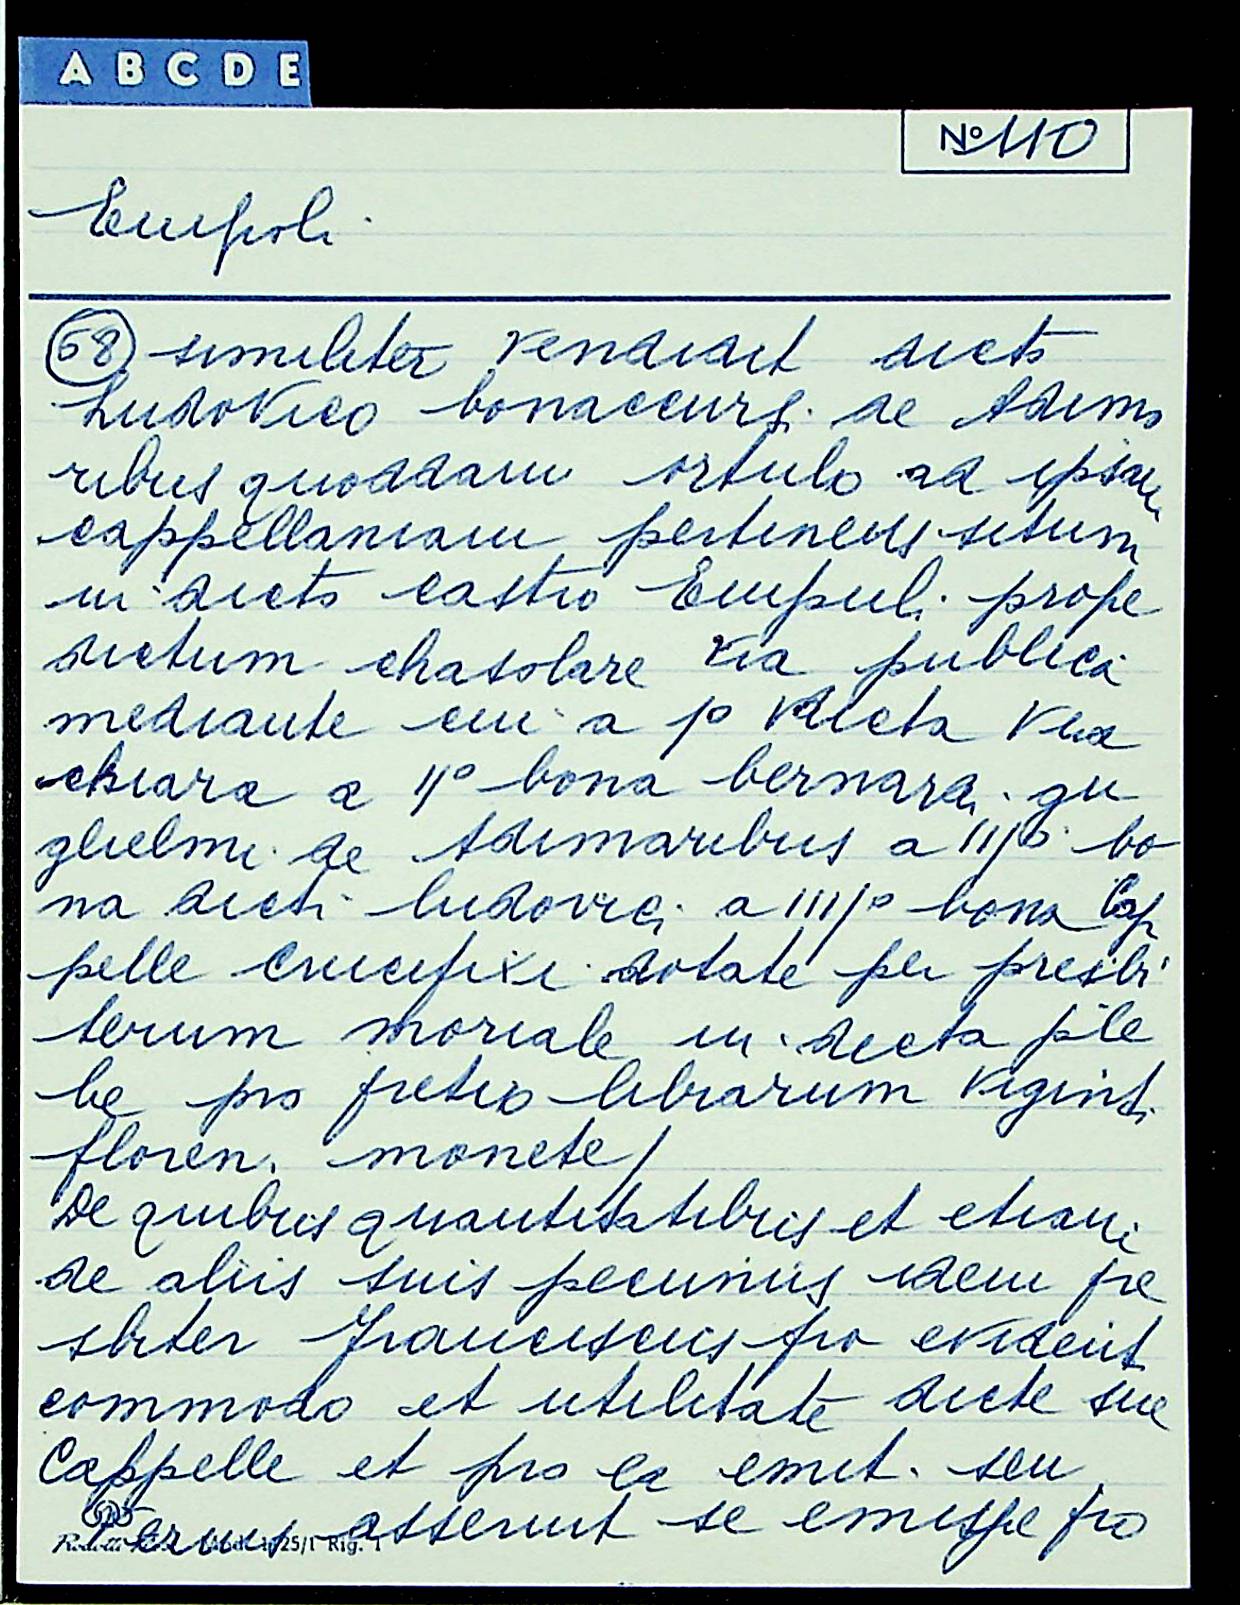 A B C D E
Nº 110
Empoli
58 similiter vendidit dicto
Ludovico bonaccursi de Adima
ribus quoddam ortulo ad ipsam
cappellaniam pertinens situm
in dicto castro Empuli prope
dictum chasolare via publica
mediante cui a 1º dicta via
chiara a 11º bona bernardi gu
glielmi de Adimaribus a 111º bo
na dicti ludovici a 1111º bona Cap
pelle crucifixi dotate per presbi
terum moriale in dicta ple
be pro pretio librarum viginti
floren. monete/
De quibus quantitatibus et etiam
de aliis suis pecuniis idem pre
sbiter Franciscus pro evidenti
commodo et utilitate dicte sue
Cappelle et pro ea emit seu
asseruit se emisse pro
25/1 Rig. 1